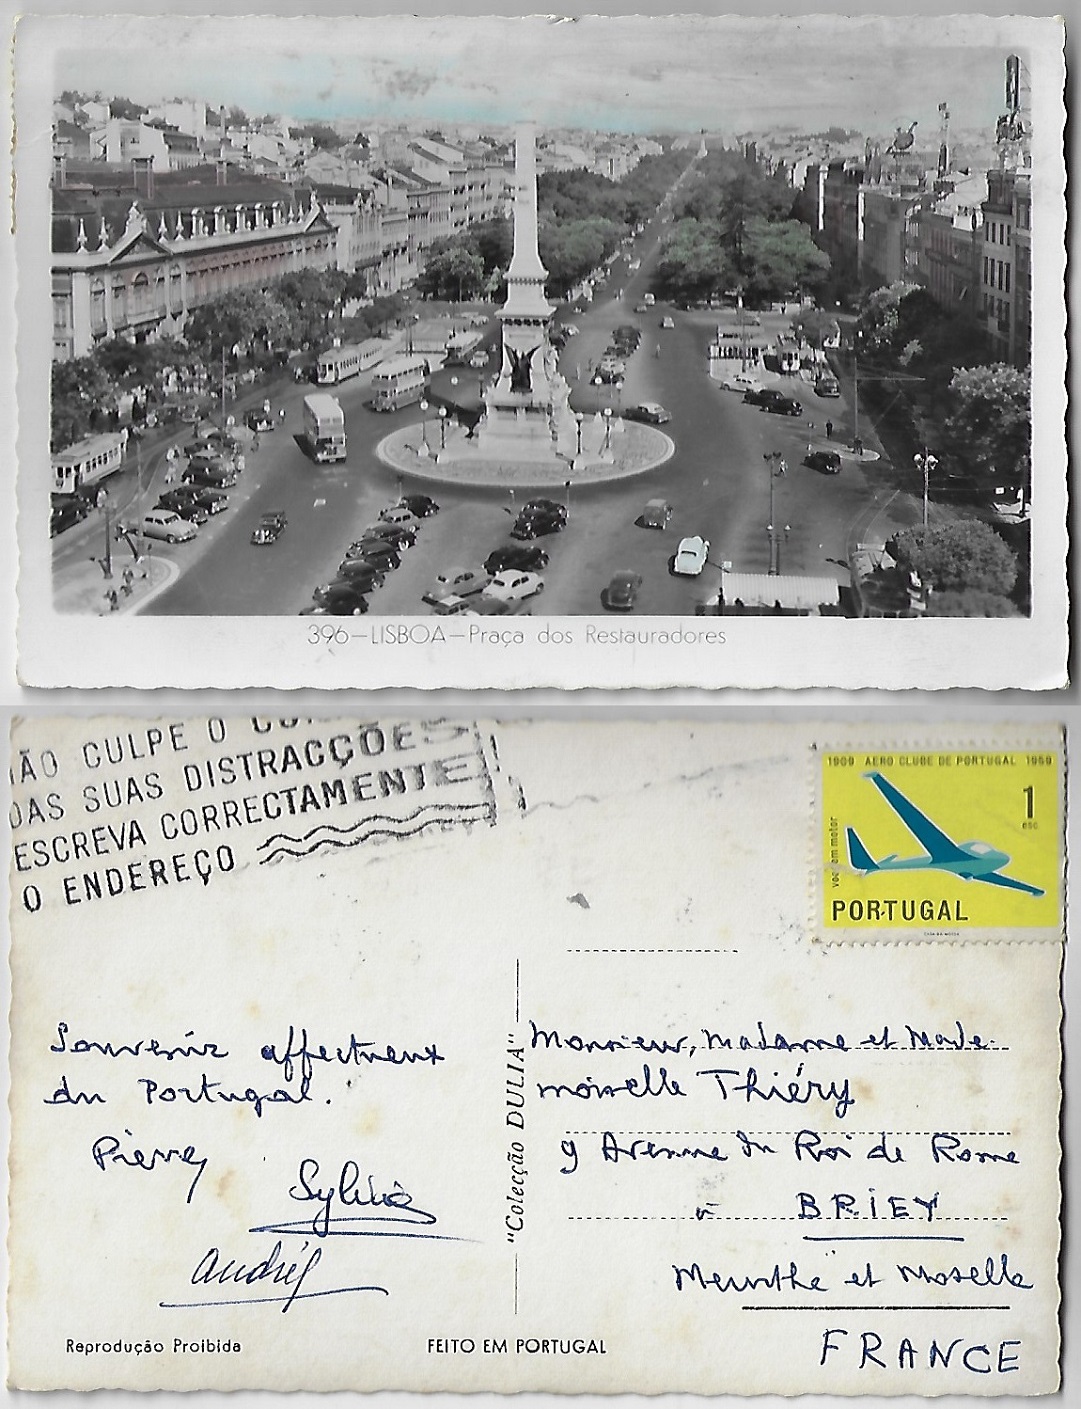 396-LISBOA-Praça dos Restauradores
ÃO CULPE O
DAS SUAS DISTRACÇÕES
ESCREVA CORRECTAMENTE
O ENDEREÇO
1909 AERO CLUBE DE PORTUGAL 1959
1
esc
voo sem motor
PORTUGAL
Souvenir affectueux
du Portugal.
Pierre
Sylvia
André
"Colecção DULIA"
Monsieur, Madame et Made-
moiselle Thiéry
9 Avenue du Roi de Rome
à BRIEY
Meurthe et Moselle
FRANCE
Reprodução Proibida
FEITO EM PORTUGAL